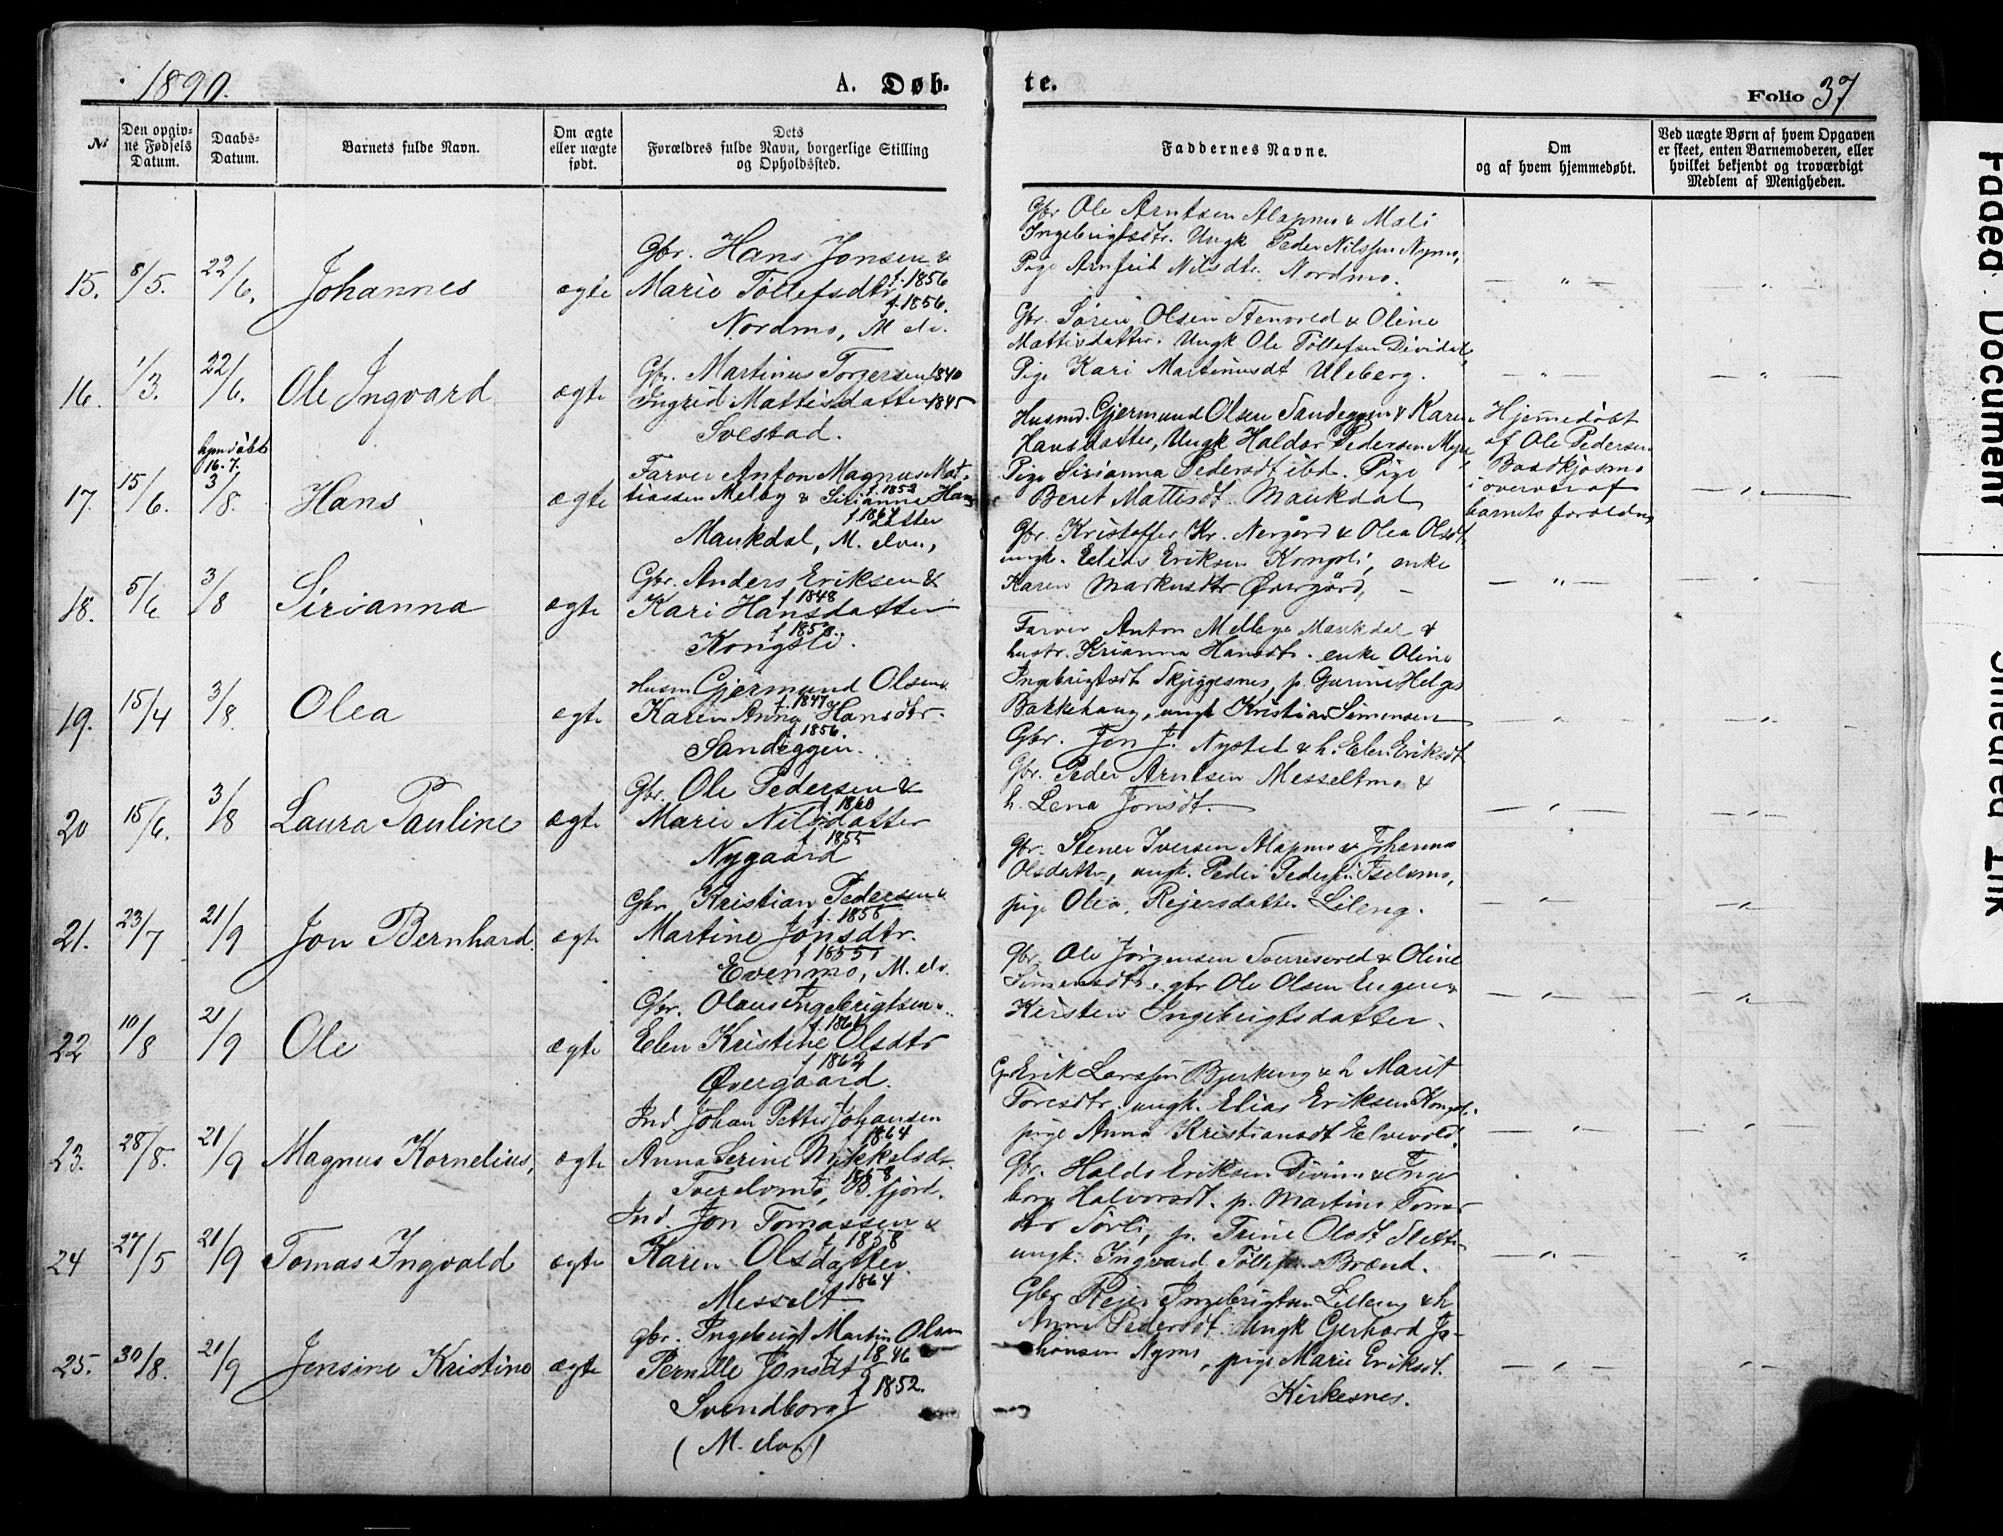 1890.
A. Døb-
te.
Folio 37
№
Den opgiv-
ne Fødsels
Datum.
Daabs-
Datum.
Barnets fulde Navn.
Om ægte
eller uægte
født.
Dets
Forældres fulde Navn, borgerlige Stilling
og Opholdssted.
Faddernes Navne.
Om
og af hvem hjemmedøbt.
Ved uægte Børn af hvem Opgaven
er skeet, enten Barnemoderen, eller
hvilket bekjendt og troværdigt
Medlem af Menigheden.
15. 8/5. 22/6. Johannes ægte
Gbr. Hans Jonsen &
f. 1856
Marie Tollefsdtr
f. 1856.
Nordmo, M. elv.
Gbr Ole Arntsen Alapmo & Mali
Ingebrigtsdtr. Ungk Peder Nilssen Nymo,
Pige Arnfrid Nilsdtr. Nordmo.
— " —
— " —
16. 1/3. 22/6. Ole Ingvard ægte
Gbr. Martinus Torgersen 1840
Ingrid Mattisdatter 1845
Svestad.
Gbr. Søren Olsen Stenvold & Oline
Mattisdatter. Ungk Ole Tollefsen Dividal,
Pige Kari Martinusdt Uleberg.
— " —
— " —
17. 15/6. hjemdøbt
16. 7.
3/8. Hans ægte
Farver Anton Magnus Mat-
tiassen Melby & Sirianna Hans
f. 1853
f 1864
datter
Maukdal, M. elv,
Husmd. Gjermund Olsen Sandeggen & Karen
Hansdatter, Ungk Haldor Pedersen Mo,
Pige Sirianna Pedersdt ibd. Pige
Beret Mattisdt Maukdal
Hjemmedøbt
af Ole Pedersen
i overvær af
barnets forældre
— " —
18. 5/6 3/8 Sirianna ægte
Gbr. Anders Eriksen &
f 1848
Kari Hansdatter
f 1853.
Kongsli.
Gbr. Kristoffer Kr. Nergård & Olea Olsdt,
ungk. Elias Eriksen Kongsli, enke
Karen Markusdtr Øvergård,
— " —
19. 15/4 3/8. Olea ægte
Husm Gjermund Olsen &
f. 1847
Karen Anna Hansdtr.
f 1856
Sandeggen.
Farver Anton Melbye Maukdal &
hustr. Sirianna Hansdt. enke Oline
Ingebrigtsdt Skjeggesnes, p. Gurine Helges
Bakkehaug, ungk Kristian Simonsen
— " —
— " —
20 15/6. 3/8 Laura Pauline ægte
Gbr. Ole Pedersen &
f 1860
Marie Nilsdatter
f 1855
Nygaard
Gbr. Jon J. Nysted & h. Elen Eriksdt
Gbr. Peder Arntsen Messeltmo &
h. Lena Jonsdt.
— " —
— " —
21. 23/7 21/9 Jon Bernhard ægte
Gbr. Kristian Pedersen &
f. 1856
Martine Jonsdtr.
f 1855
Evenmo, M. elv.
Gbr. Stener Iversen Alapmo & Johanna
Olsdatter, ungk. Peder Pedersen Iselvmo,
pige Olea Rejersdatter Lileng.
— " —
— " —
22 10/8 21/9 Ole ægte
Gbr. Olaus Ingebrigtsen &
f. 1861
Elen Kristine Olsdtr
f 1862
Øvergaard.
Gbr. Ole Jørgensen Sverresvold & Oline
Simensdtr, gbr Ole Olsen Engen &
Kirsten Ingebrigtsdatter.
— " —
— " —
23. 28/8. 21/9 Magnus Kornelius, ægte
Ind. Johan Petter Johansen
f 1864
Anna Serine Mikkelsdr
1858
Tverelvmo, B. fjord.
Gbr Erik Larssen Bjerkeng & h Marit
Toresdtr. ungk. Elias Eriksen Kongsli.
pige Anna Kristiansdt Elvevold.
— " —
— " —
24 27/5 21/9 Tomas Ingvald ægte
Ind. Jon Tomassen &
f. 1858
Karen Olsdatter.
f 1864
Messelt
Gbr. Haldo Eriksen Divimo & Inge
borg Halvorsdt. p. Martine Tomas
dtr Sørli, p. Trine Olsdt Slette
ungk. Ingvard Tollefsen Brænd.
— " —
"
25. 30/8. 21/9 Jensine Kristine ægte
gbr. Ingebrigt Martin Olsen
f 1846
Pernille Jonsdtr
f 1852.
Svendborg
(M. elv.)
Gbr Rejer Ingebrigtsen Lilleng & h
Anne Pedersdt. Ungk Gerhard Jo-
hansen Nymo, pige Marie Eriksdt.
Kirkesnes.
— " —
— " —
Faded Document
Smeared Ink